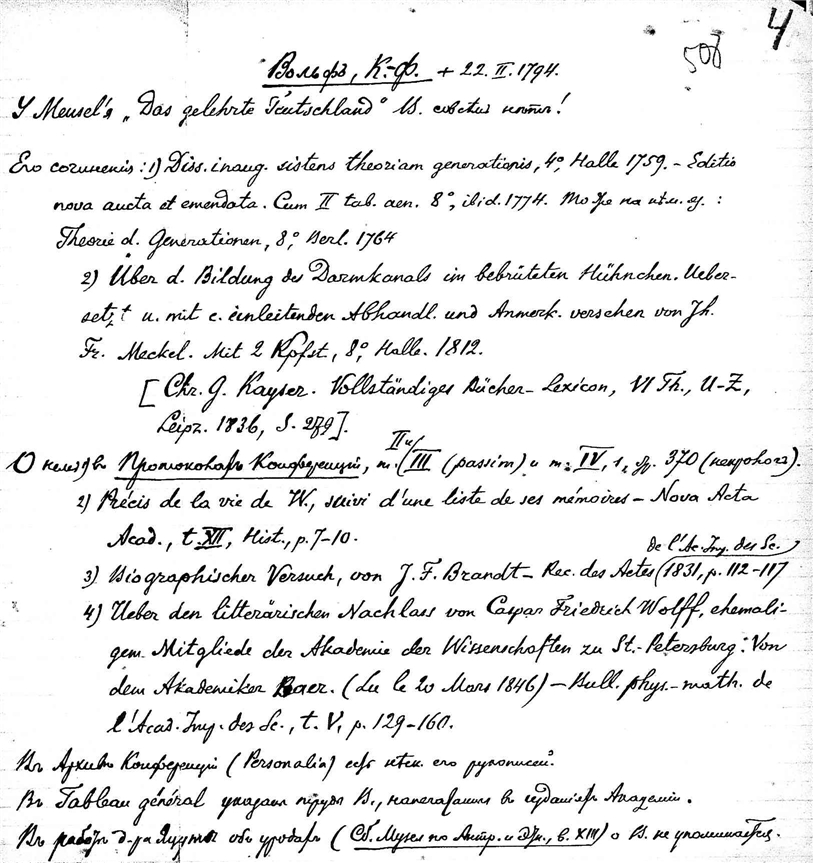 4
508
Вольфъ, К.-Ф. + 22. II. 1794.
У Meusel'я „Das gelehrte Teutschland" В. совсѣмъ нѣтъ!
Его сочиненія: 1) Diss. inaug. sistens theoriam generationis, 4°, Halle 1759. – Editio
nova aucta et emendata. Cum II tab. aen. 8°, ibid. 1774. То же на нѣм. яз. :
Theorie d. Generationen, 8°, Berl. 1764
2) Über d. Bildung des Darmkanals im bebrüteten Hühnchen. Ueber-
setzt u. mit e. einleitenden Abhandl. und Anmerk. versehen von Jh.
Fr. Meckel. Mit 2 Kpfst, 8°, Halle. 1812.
[Chr. G. Kayser. Vollständiges Bücher-Lexicon, VI Th., U-Z,
Leipz. 1836, S. 279].
О немъ въ Протоколахъ Конференціи, т. II и III (passim) и т. IV, стр. 370 (некрологъ).
2) Précis de la vie de W., suivi d'une liste de ses mémoires – Nova Acta
Acad., t. XII, Hist., p. 7–10.
3) Biographischer Versuch, von J. F. Brandt – Rec. des Actes de l'Ac. Imp. des Sc. (1831, p. 112–117
4) Ueber den litterärischen Nachlass von Caspar Friedrich Wolff, ehemali-
gem Mitgliede der Akademie der Wissenschaften zu St.-Petersburg. Von
dem Akademiker Baer. (Lu le 20 Mars 1846) – Bull. phys.-math. de
l'Acad. Imp. des Sc., t. V, p. 129–160.
Въ Архивѣ Конференціи (Personalia) есть нѣск. его рукописей.
Въ Tableau général указаны труды В., напечатанные въ изданіяхъ Академіи.
Въ работѣ д-ра объ уродахъ (Сб. Музея по Антр. и Этн., в. XIII) о В. не упоминается.